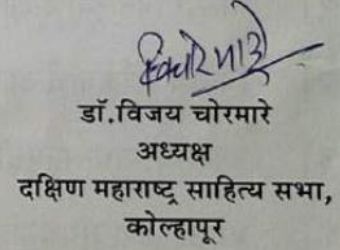 डॉ.विजय चोरमारे
अध्यक्ष
दक्षिण महाराष्ट्र साहित्य सभा,
कोल्हापूर